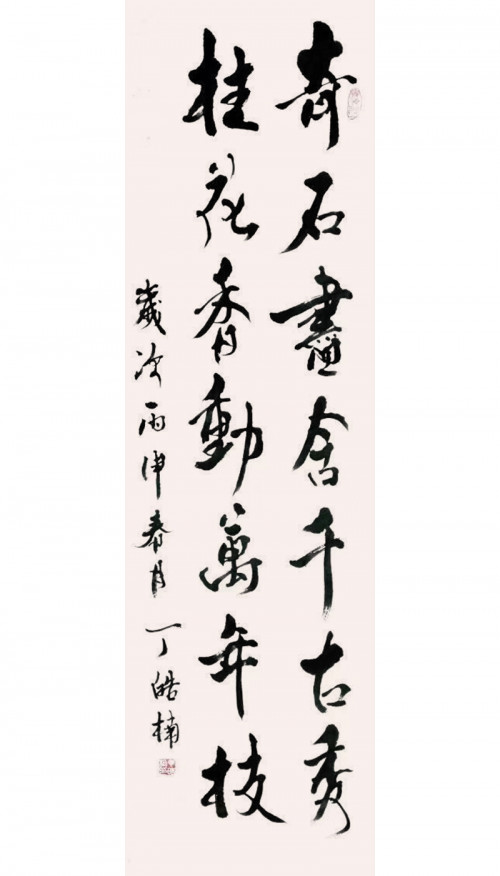 奇石畫含千古秀
桂花香動萬年技
歲次丙申春月 丁皓楠